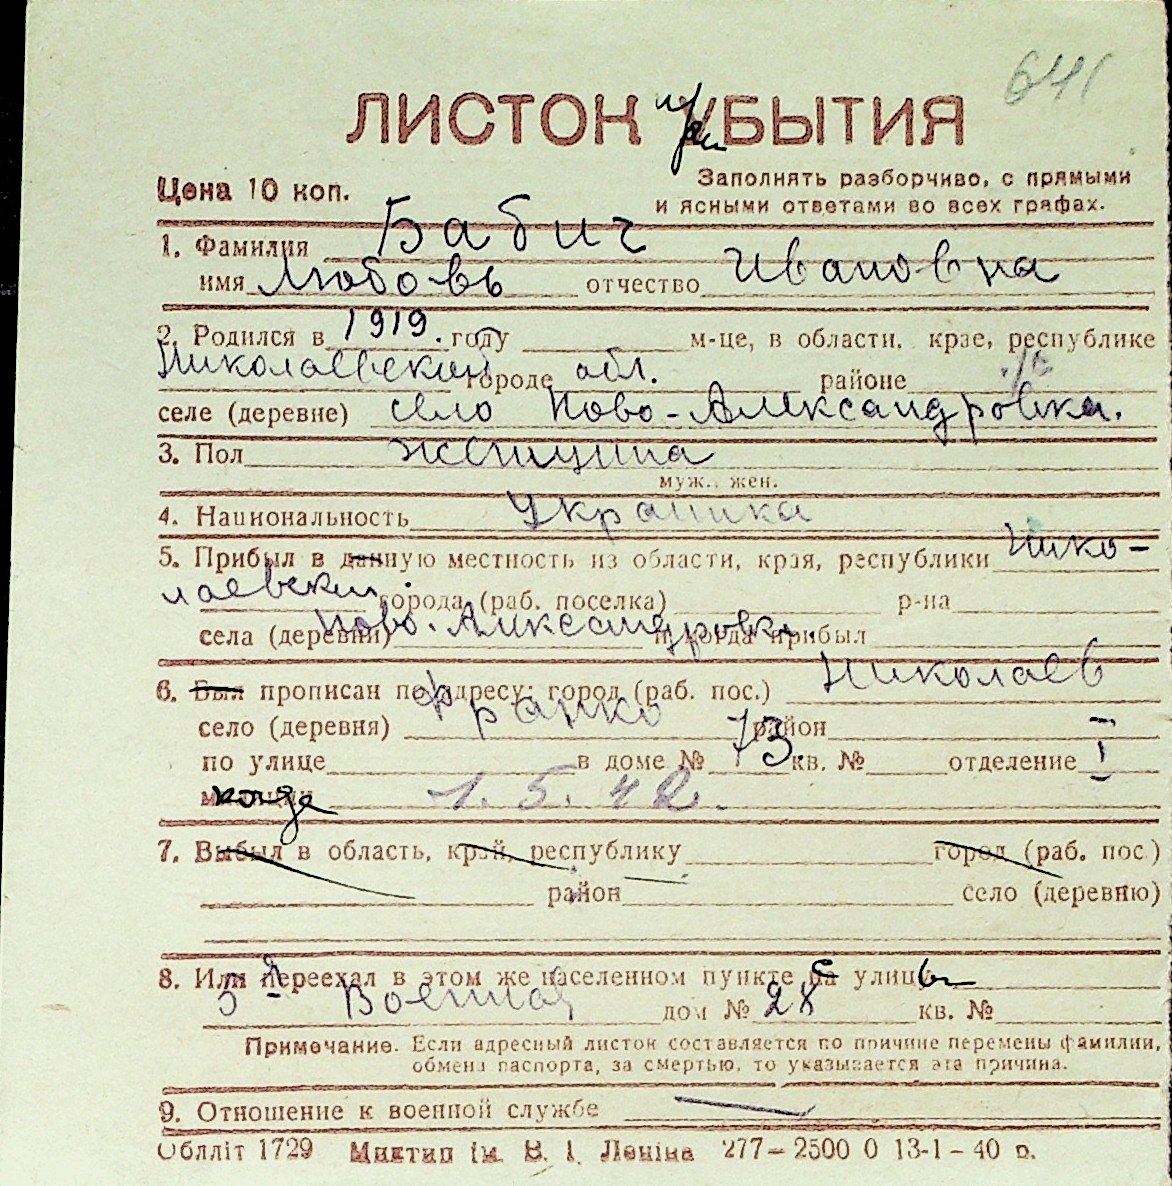 641
ЛИСТОК УБЫТИЯ
при
Цена 10 коп.
Заполнять разборчиво, с прямыми
и ясными ответами во всех графах.
1. Фамилия Бабич
имя Любовь отчество Ивановна
2. Родился в 1919. году м-це, в области, крае, республике
Николаевской городе обл. районе
селе (деревне) село Ново-Александровка.
3. Пол женщина
муж., жен.
4. Национальность Украинка
5. Прибыл в данную местность из области, края, республики Нико-
лаевский города (раб. поселка) р-на
села (деревни) Ново-Александровка. и когда прибыл
6. Был прописан по адресу: город (раб. пос.) Николаев
село (деревня) Франко район
по улице в доме № 73. кв. № отделение I
милиции когда 1.5.42.
7. Выбыл в область, край, республику город (раб. пос.)
район село (деревню)
8. Или переехал в этом же населенном пункте на с улицу ы
5я Военная дом № 28 кв. №
Примечание. Если адресный листок составляется по причине перемены фамилии,
обмена паспорта, за смертью, то указывается эта причина.
9. Отношение к военной службе
Обллiт 1729 Миктип iм. В. I. Ленiна 277–2500 0 13-1–40 р.